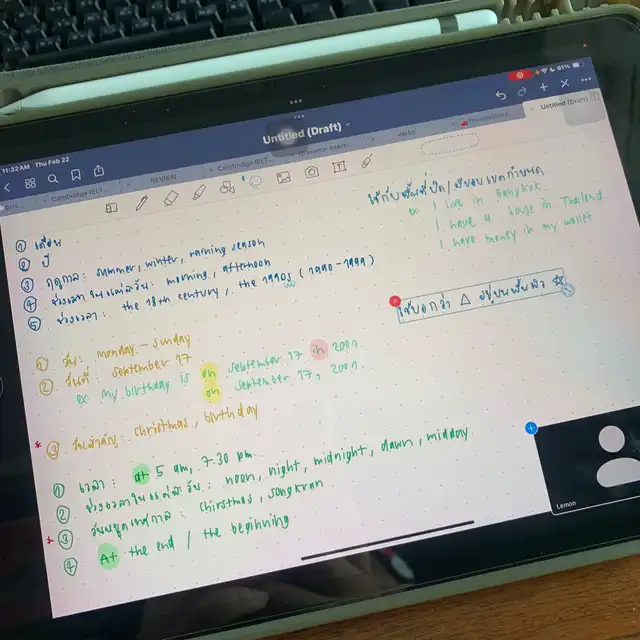 11:32 AM Thu Feb 22
81%
Untitled (Draft)
Cambridge IELT...
REVIEW
Cambridge IELT...
verbs
Untitled (Draft)
ใช้กับพื้นที่ปิด/มีขอบเขตกำหนด
ex: I live in Bangkok
I have a house in Thailand
I have money in my wallet
① เดือน
② ปี
③ ฤดูกาล: summer, winter, raining season
④ ช่วงเวลาในแต่ละวัน: morning, afternoon
⑤ ช่วงเวลา: the 18th century, the 1990s (1990-1999)
ใช้บอกว่า △ อยู่บนพื้นผิว ☆
① วัน: monday - sunday
② วันที่ september 17
ex My birthday is on september 17 in 2007
on september 17, 2007.
* ③ วันสำคัญ: christmas, birthday
① เวลา: at 5 am, 7.30 pm.
② ช่วงเวลาในแต่ละวัน: noon, night, midnight, dawn, midday
* ③ วันหยุดเทศกาล: chirstmas, songkran
④ At the end / the beginning
Lemon